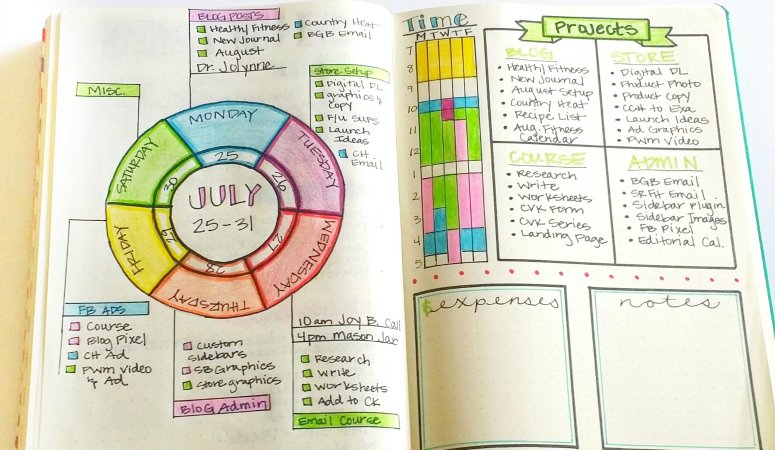 BLOG POSTS
Health/Fitness
New Journal
August
Dr. Jolynne
Country Heat
BGB Email
Store Setup
Digital DL
graphics &
Copy
F/U SUPS
Launch
Ideas
CH.
Email
MISC.
MONDAY
25
TUESDAY
26
WEDNESDAY
27
THURSDAY
28
FRIDAY
29
SATURDAY
30
JULY
25-31
FB ADS
Course
Blog Pixel
CH Ad
PWM Video
Ad
Custom
Sidebars
SB Graphics
Store graphics
Blog Admin
10am Joy B. Call
4pm Mason Jar
Research
Write
Worksheets
Add to CK
Email Course
Time
M T W T F
7
8
9
10
11
12
1
2
3
4
5
Projects
BLOG
Health/Fitness
New Journal
August Setup
Country Heat
Recipe List
Aug. Fitness
Calendar
STORE
Digital DL
Product Photo
Product Copy
CCH to Exa.
Launch Ideas
Ad Graphics
PWM Video
COURSE
Research
Write
Worksheets
CVK Form
CVK Series
Landing Page
ADMIN
BGB Email
SRFit Email
Sidebar Plugin
Sidebar Images
FB Pixel
Editorial Cal.
$expenses
notes